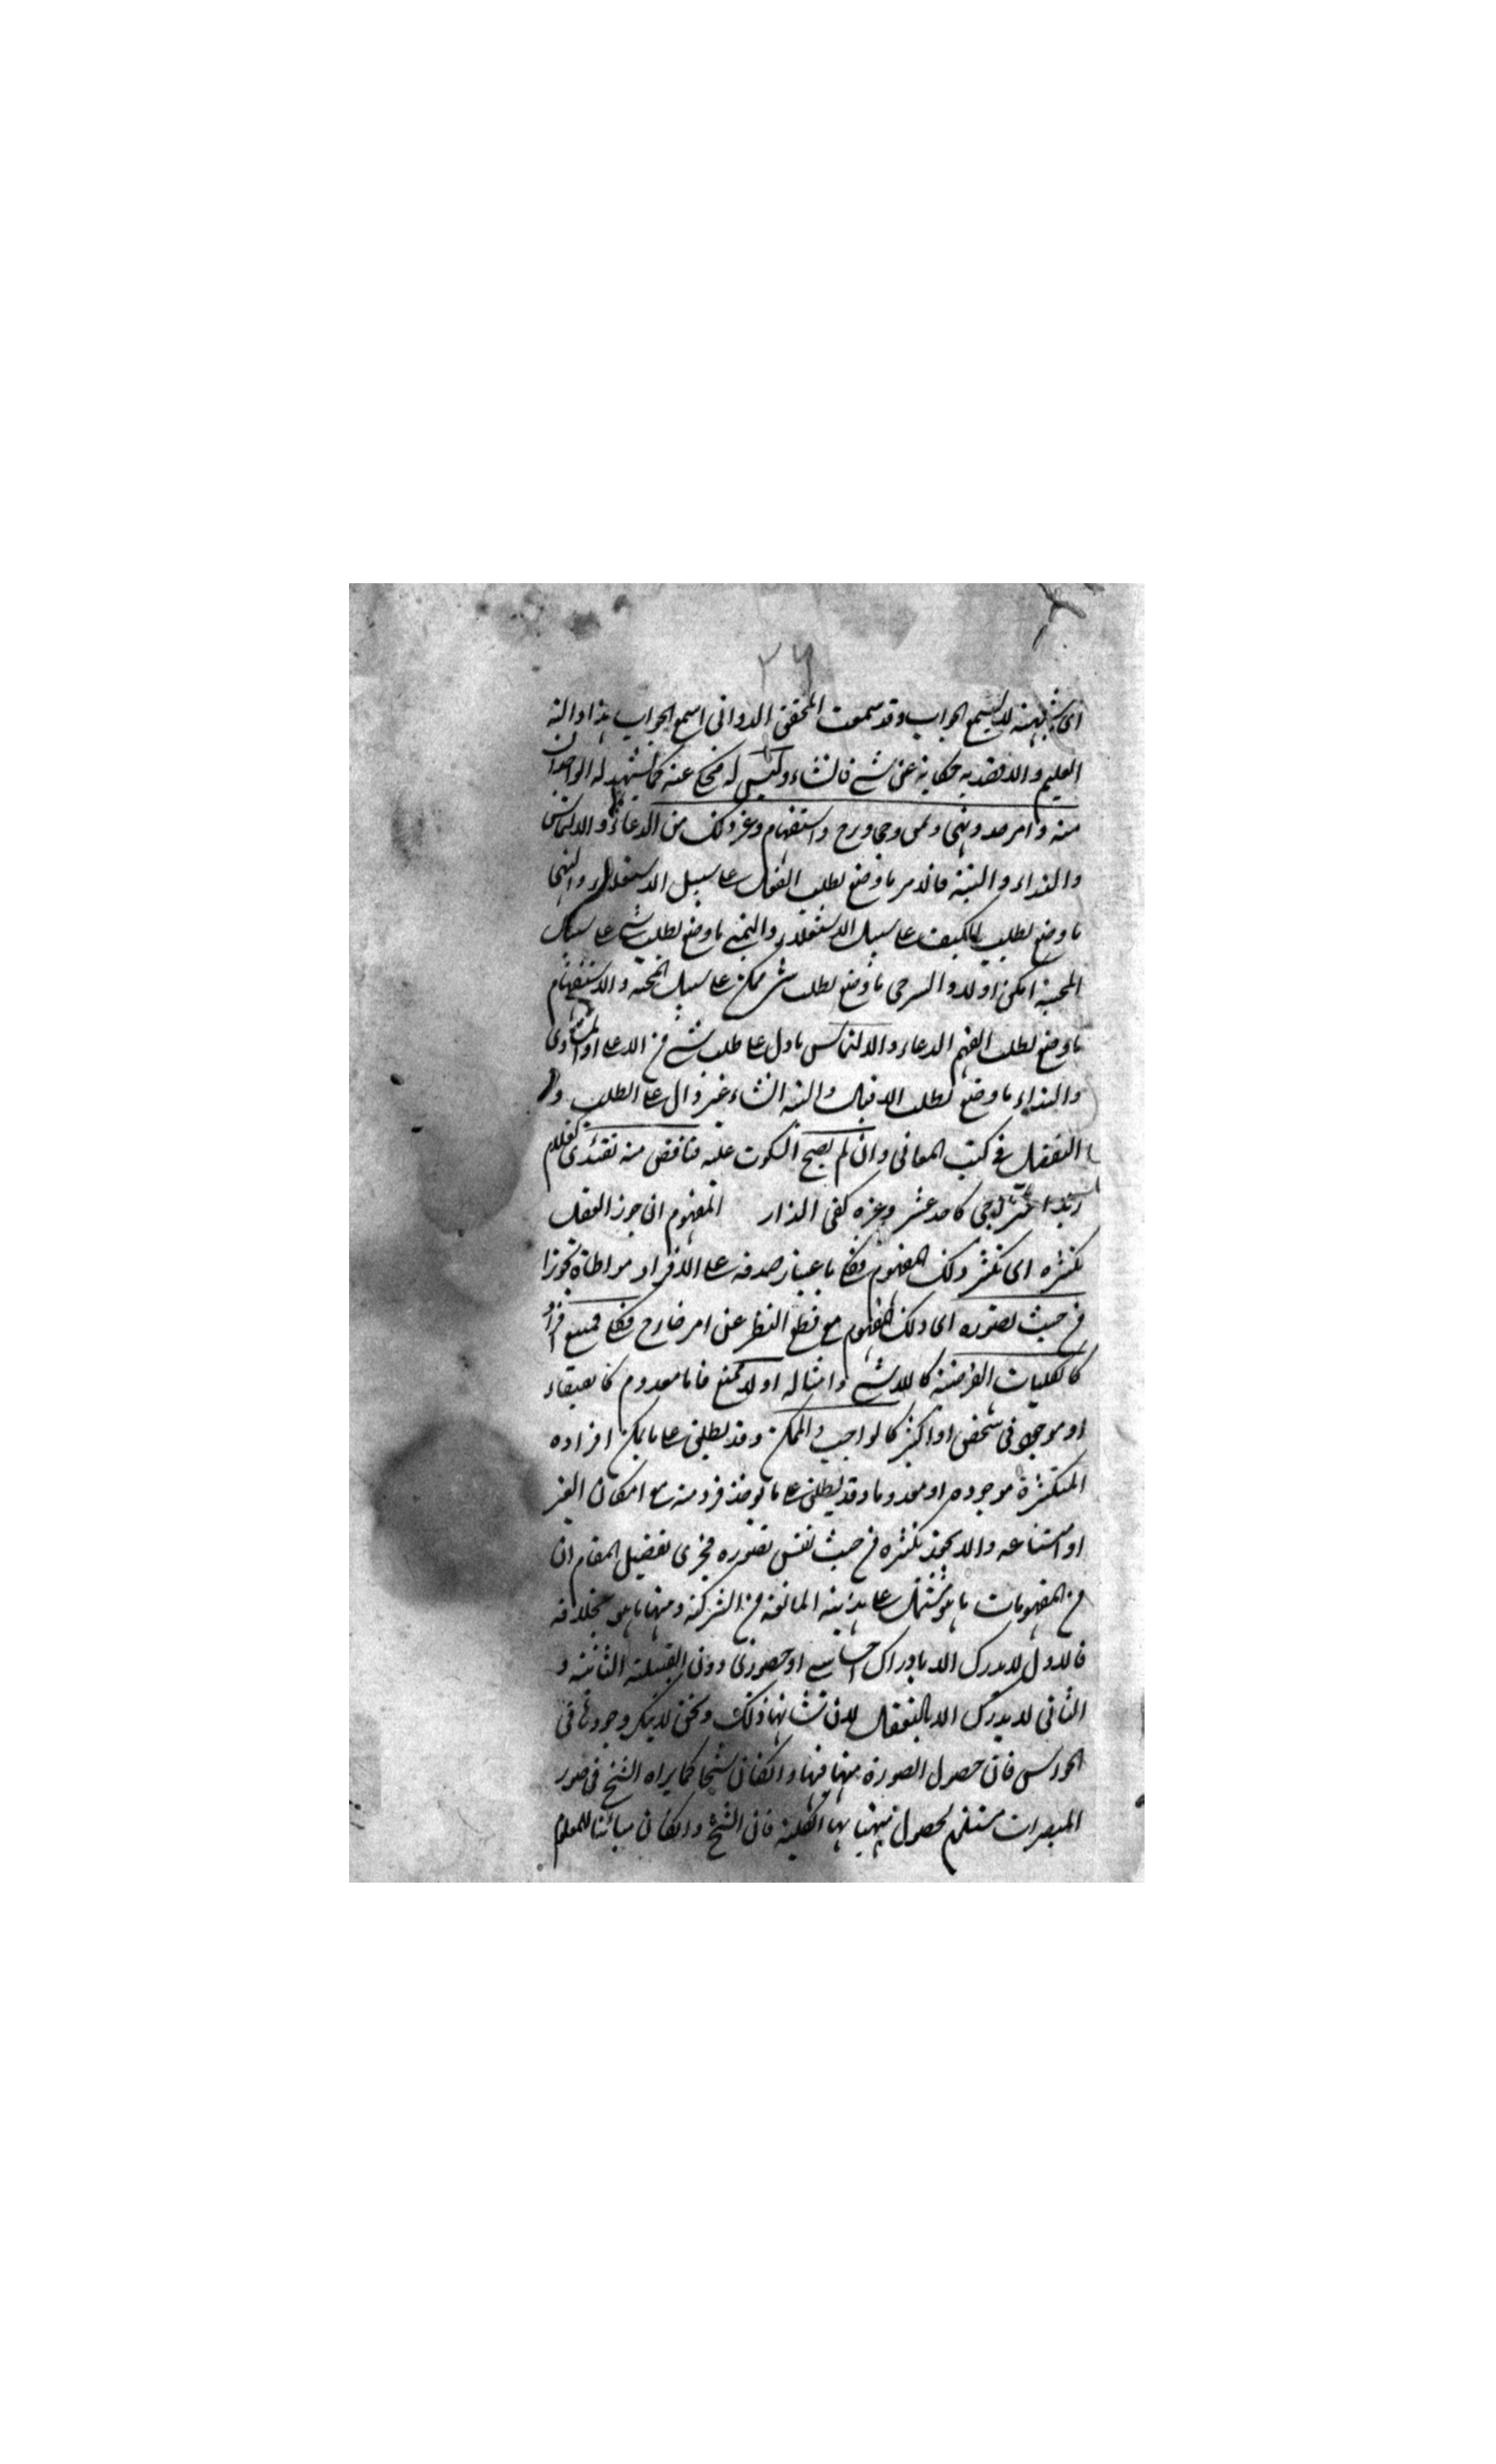 ٢٦
اى شبهة لا يسمع الجواب وقد سمعت المحقق الدوانى اسمع الجواب هذا والله
العليم والا يقصد به حكاية عن شئ فانشاء وليس له محكى عنه كما يشهد له الوجدان
منه وامر ونهى وتمن وترج واستفهام وغير ذلك من الدعاء والالتماس
والنداء والتنبيه فالامر ما وضع لطلب الفعل على سبيل الاستعلاء والنهى
ما وضع لطلب الكف على سبيل الاستعلاء والتمنى ما وضع لطلب شئ على سبيل
المحبة امكن اولا والترجى ما وضع لطلب شئ ممكن على سبيل المحبة والاستفهام
ما وضع لطلب الفهم الدعاء والالتماس ما دل على طلب شئ من الادنى او المساوى
والنداء ما وضع لطلب الاقبال والتنبيه انشاء غير دال على الطلب و
التفصيل فى كتب المعانى وان لم يصح السكوت عليه فناقص منه تقييدى كغلام
زيد امتزاجى كاحد عشر وغيره كفى الدار المفهوم ان جوز العقل
تكثره اى تكثر ذلك المفهوم فكلى باعتبار صدقه على الافراد مواطاة تجوزا
من حيث تصوره اى ذلك المفهوم مع قطع النظر عن امر خارج فكلى ممتنع افراده
كالكليات الفرضية كاللاشئ وامثاله اولا تمتنع فاما معدوم كالعنقاء
او موجود فى شخص او اكثر كالواجب والممكن وقد يطلق على ما يمكن افراده
المتكثرة موجودة او معدوما وقد يطلق على ما يوجد فرد منه مع امكان الغير
او امتناعه والا يجوز تكثره من حيث نفس تصوره فجزى تفصيل المقام ان
من المفهومات ما هو مشتمل على هذية المانعة من الشركة ومنها ما هو بخلافه
فالاول لا يدرك الا بادراك احساسى او حضورى دون القبيلة الثانية و
الثانى لا يدرك الا بالتعقل لان شانها ذلك ونحن لا ننكر وجودها فى
الحواس فان حصول الصورة منها فيها وان كان شبحا كما يراه الشيخ فى صور
المبصرات مستلزم لحصول مهياتها الكلية فان الشبح وان كان مبائنا للمعلوم